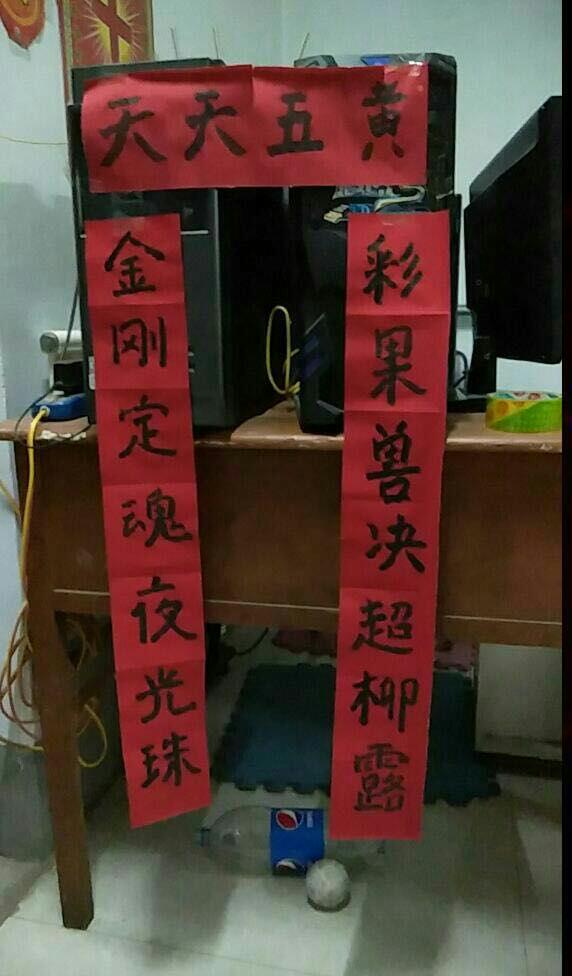 黄五天天
彩果兽决超柳露
金刚定魂夜光珠